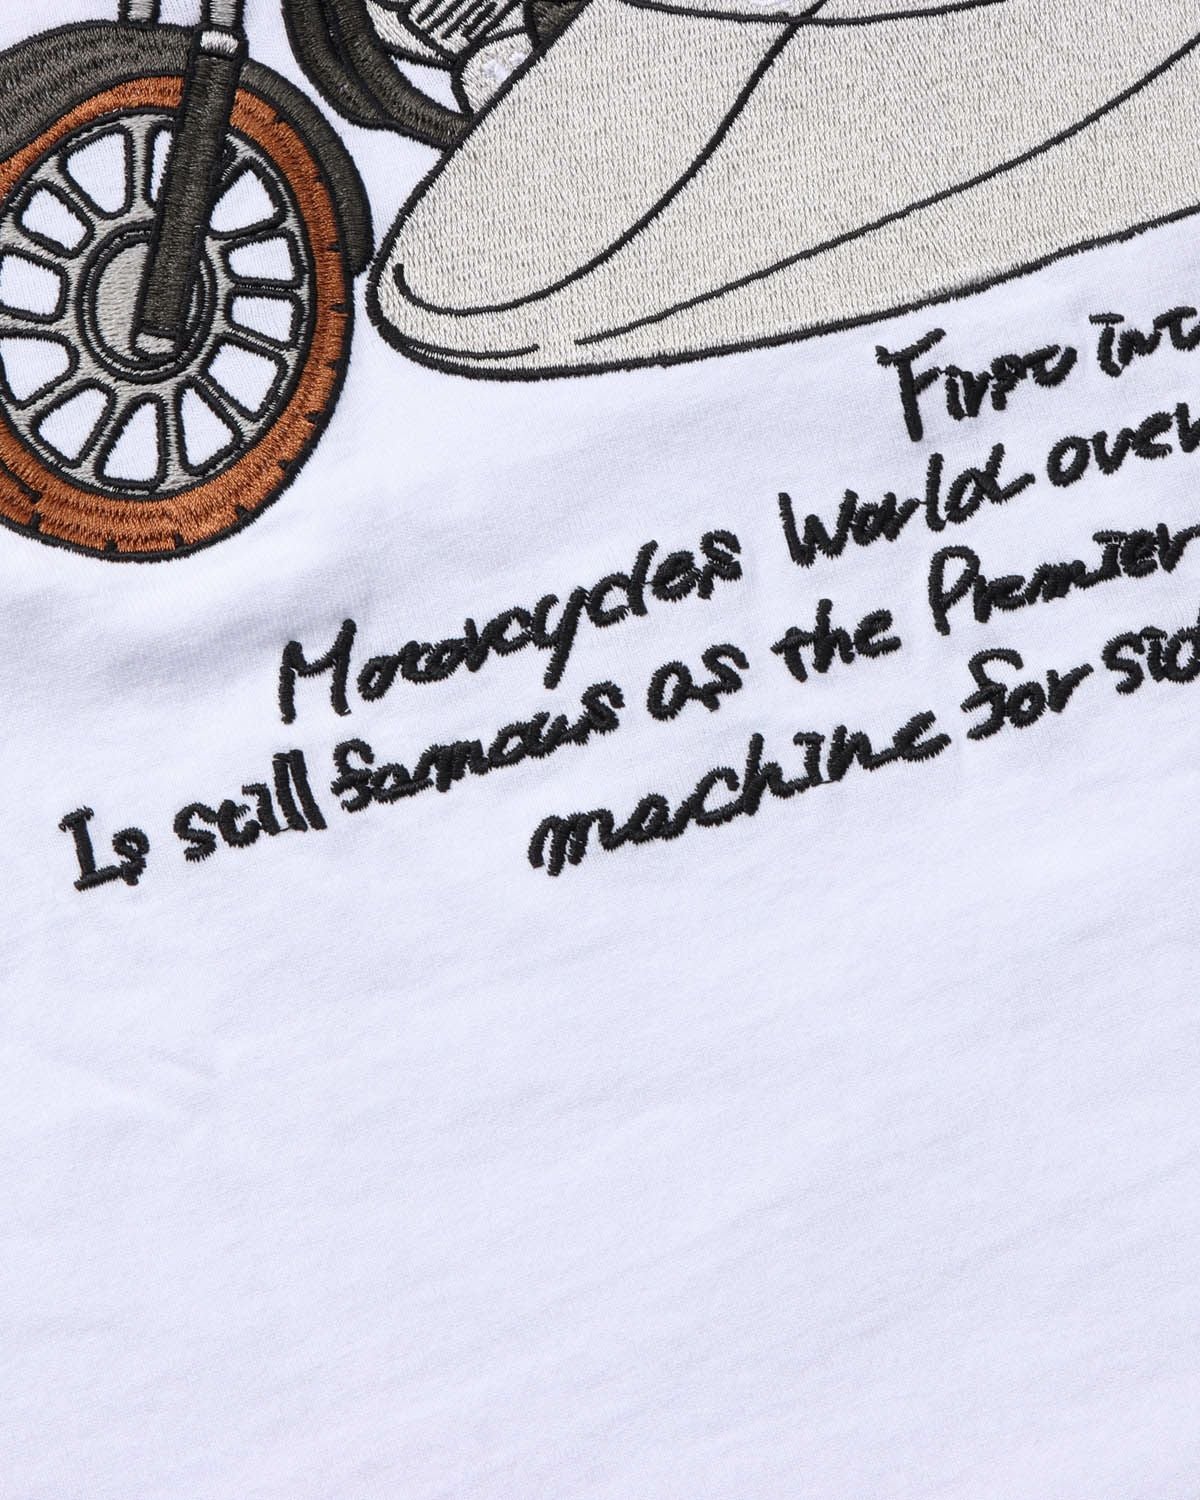 First in
Motorcycles World over
Is still famous as the Premier
machine for